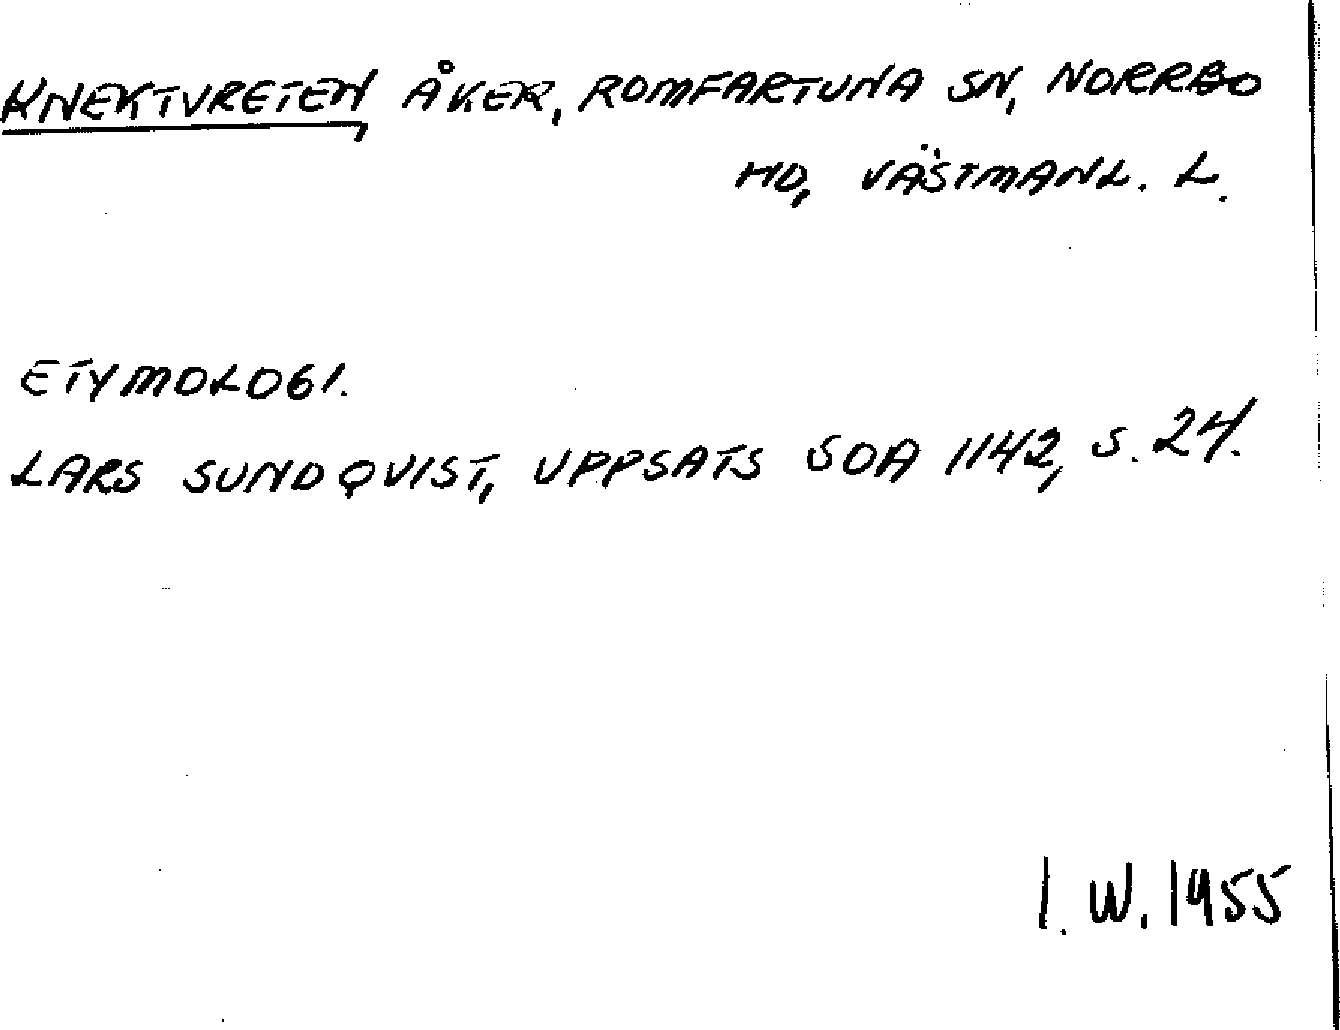 KNEKTVRETEN, ÅKER, ROMFARTUNA SN, NORRBO
HD, VÄSTMANL. L.
ETYMOLOGI.
LARS SUNDQVIST, UPPSATS SOA 1142, S. 24.
I. W. 1955